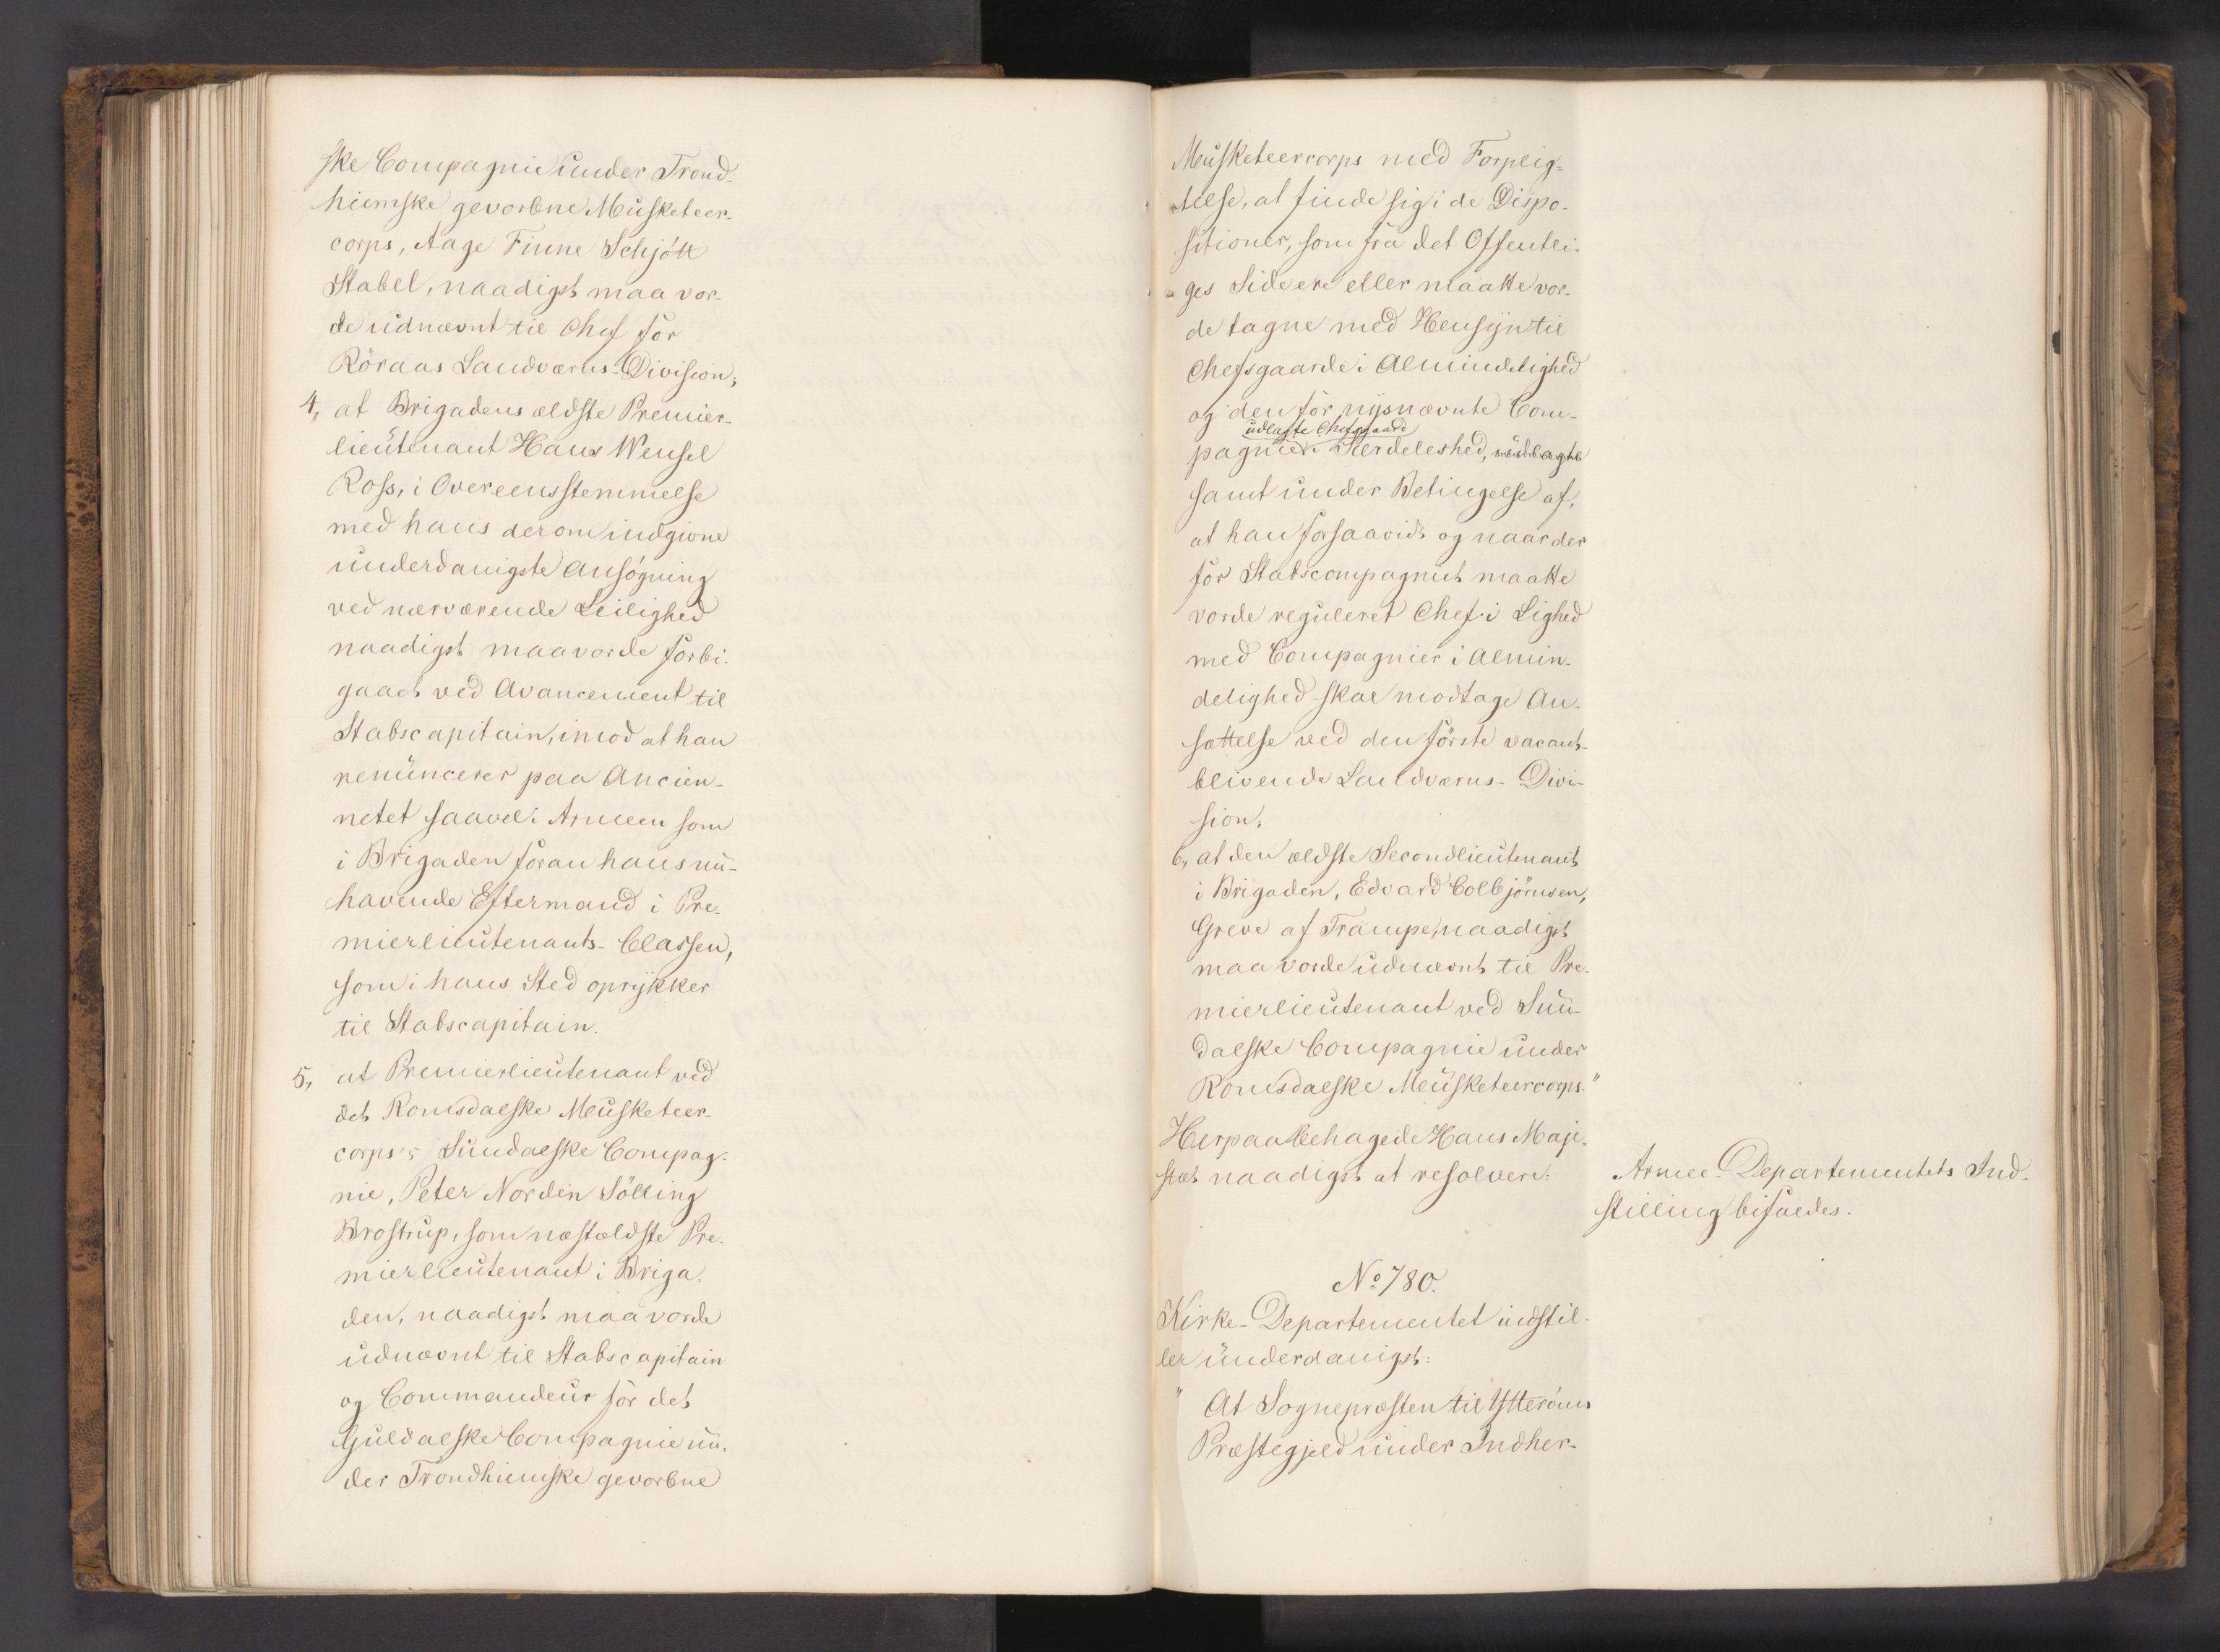 ske Compagnie under Trond-
hiemske gevorbne Musketeer-
corps, Aage Finne Schjött
Stabel, naadigst maa vor-
de udnævnt til Chef for
Röraas Landværns-Division;
4, at Brigadens ældste Premier-
lieutenant Hans Wensel
Ross, i Overeensstemmelse
med hans derom indgivne
underdanigste Ansögning
ved nærværende Leilighed
naadigst maa vorde forbi-
gaaet ved Avancement til
Stabscapitain, imod at han
renuncerer paa Ancien-
netet saavel i Armeen som
i Brigaden foran hans nu-
havende Eftermand i Pre-
mierlieutenants-Classen,
som i hans Sted oprykker
til Stabscapitain.
5, at Premierlieutenant ved
det Romsdalske Musketeer-
corps's Sundalske Compag-
nie, Peter Nordin Sölling
Brostrup, som næstældste Pre-
mierlieutenant i Briga-
den, naadigst maa vorde
udnævnt til Stabscapitain
og Commandeur for det
Guldalske Compagnie un-
der Trondhiemske gevorbne
Musketeercorps med Forplig-
telse, at finde sig i de Dispo-
sitioner, som fra det Offentli-
ges Side ere eller maatte vor-
de tagne med Hensyn til
Chefsgaarde i Almindelighed
og den for nysnævnte Com-
udlagte Chefsgaard
pagnie i Særdeleshed, udlagte
samt under Betingelse af,
at han forsaavidt og naar der
for Stabscompagniet maatte
vorde reguleret Chef i Lighed
med Compagnier i Almin-
delighed skal modtage An-
sættelse ved den förste vacant-
blivende Landværns-Divi-
sion;
6, at den ældste Secondlieutenant
i Brigaden, Edvard Colbjörnsen,
Greve af Trampe, naadigst
maa vorde udnævnt til Pre-
mierlieutenant ved Sun-
dalske Compagnie under
Romsdalske Musketeercorps."
Herpaa behagede Hans Maje-
stæt naadigst at resolvere:
Armee-Departementets Ind-
stilling bifaldes.
No 780.
Kirke-Departementet indstil-
ler underdanigst:
" At Sognepræsten til Ytteröens
Præstegjeld under Indher-